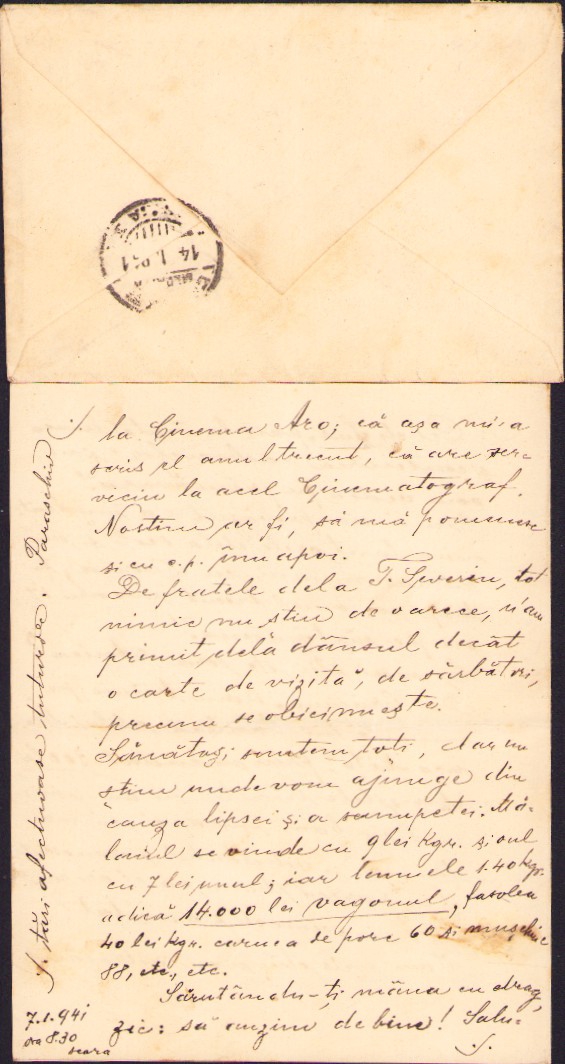 14. 1. 941
la Cinema Aro; că așa mi-a
scris el anul trecut, că are ser-
viciu la acel Cinematograf.
Nostim ar fi, să mă pomenesc
și cu c.p. înnapoi.
De fratele dela T. Severin, tot
nimic nu știu de oarece, n'am
primit dela dânsul decât
o carte de vizită, de sărbători,
precum se obicinuește.
Sănătoși suntem toți, dar nu
știu unde vom ajunge din
cauza lipsei și a scumpetei. Mă-
laiul se vinde cu 9 lei kgr. și oul
cu 7 lei unul; iar lemnele 1.40 kgr.
adică 14.000 lei vagonul, fasolea
40 lei kgr. carnea de porc 60 și mușchiu
88, etc., etc.
Sărutându-ți mâna cu drag,
zic: să auzim de bine! Salu-
tări afectuoase tuturor. Paraschiv
7.1.941
ora 8.30
seara